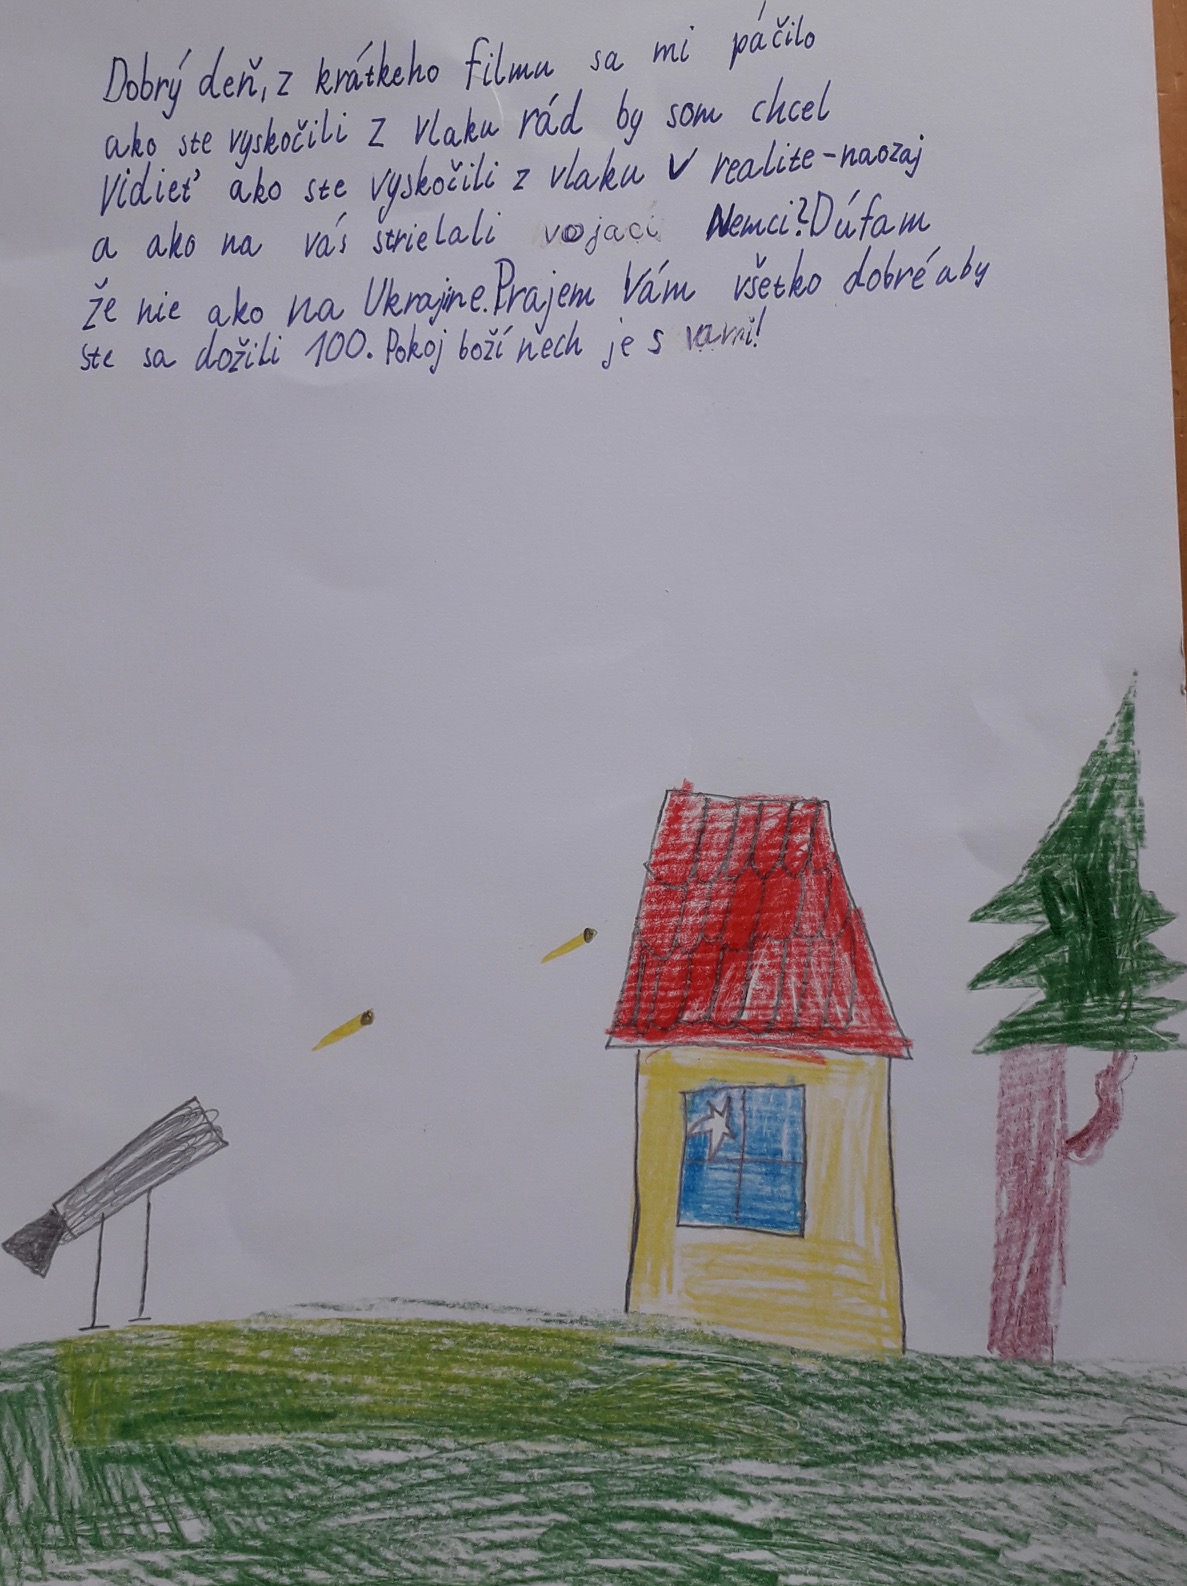 Dobrý deň, z krátkeho filmu sa mi páčilo
ako ste vyskočili z vlaku rád by som chcel
vidieť ako ste vyskočili z vlaku v realite-naozaj
a ako na vás strielali vojaci Nemci? Dúfam
že nie ako na Ukrajine. Prajem Vám všetko dobré aby
ste sa dožili 100. Pokoj boží nech je s vami!